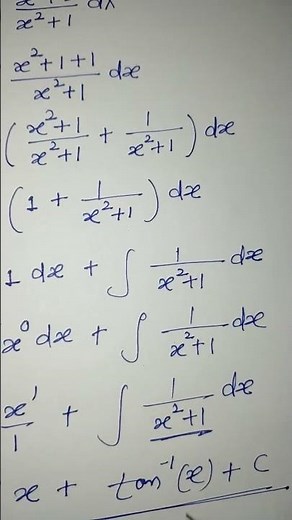 x²+1 dx
x²+1+1/x²+1 dx
(x²+1/x²+1 + 1/x²+1) dx
(1 + 1/x²+1) dx
1 dx + ∫ 1/x²+1 dx
x⁰ dx + ∫ 1/x²+1 dx
x¹/1 + ∫ 1/x²+1 dx
x + tan⁻¹(x) + C